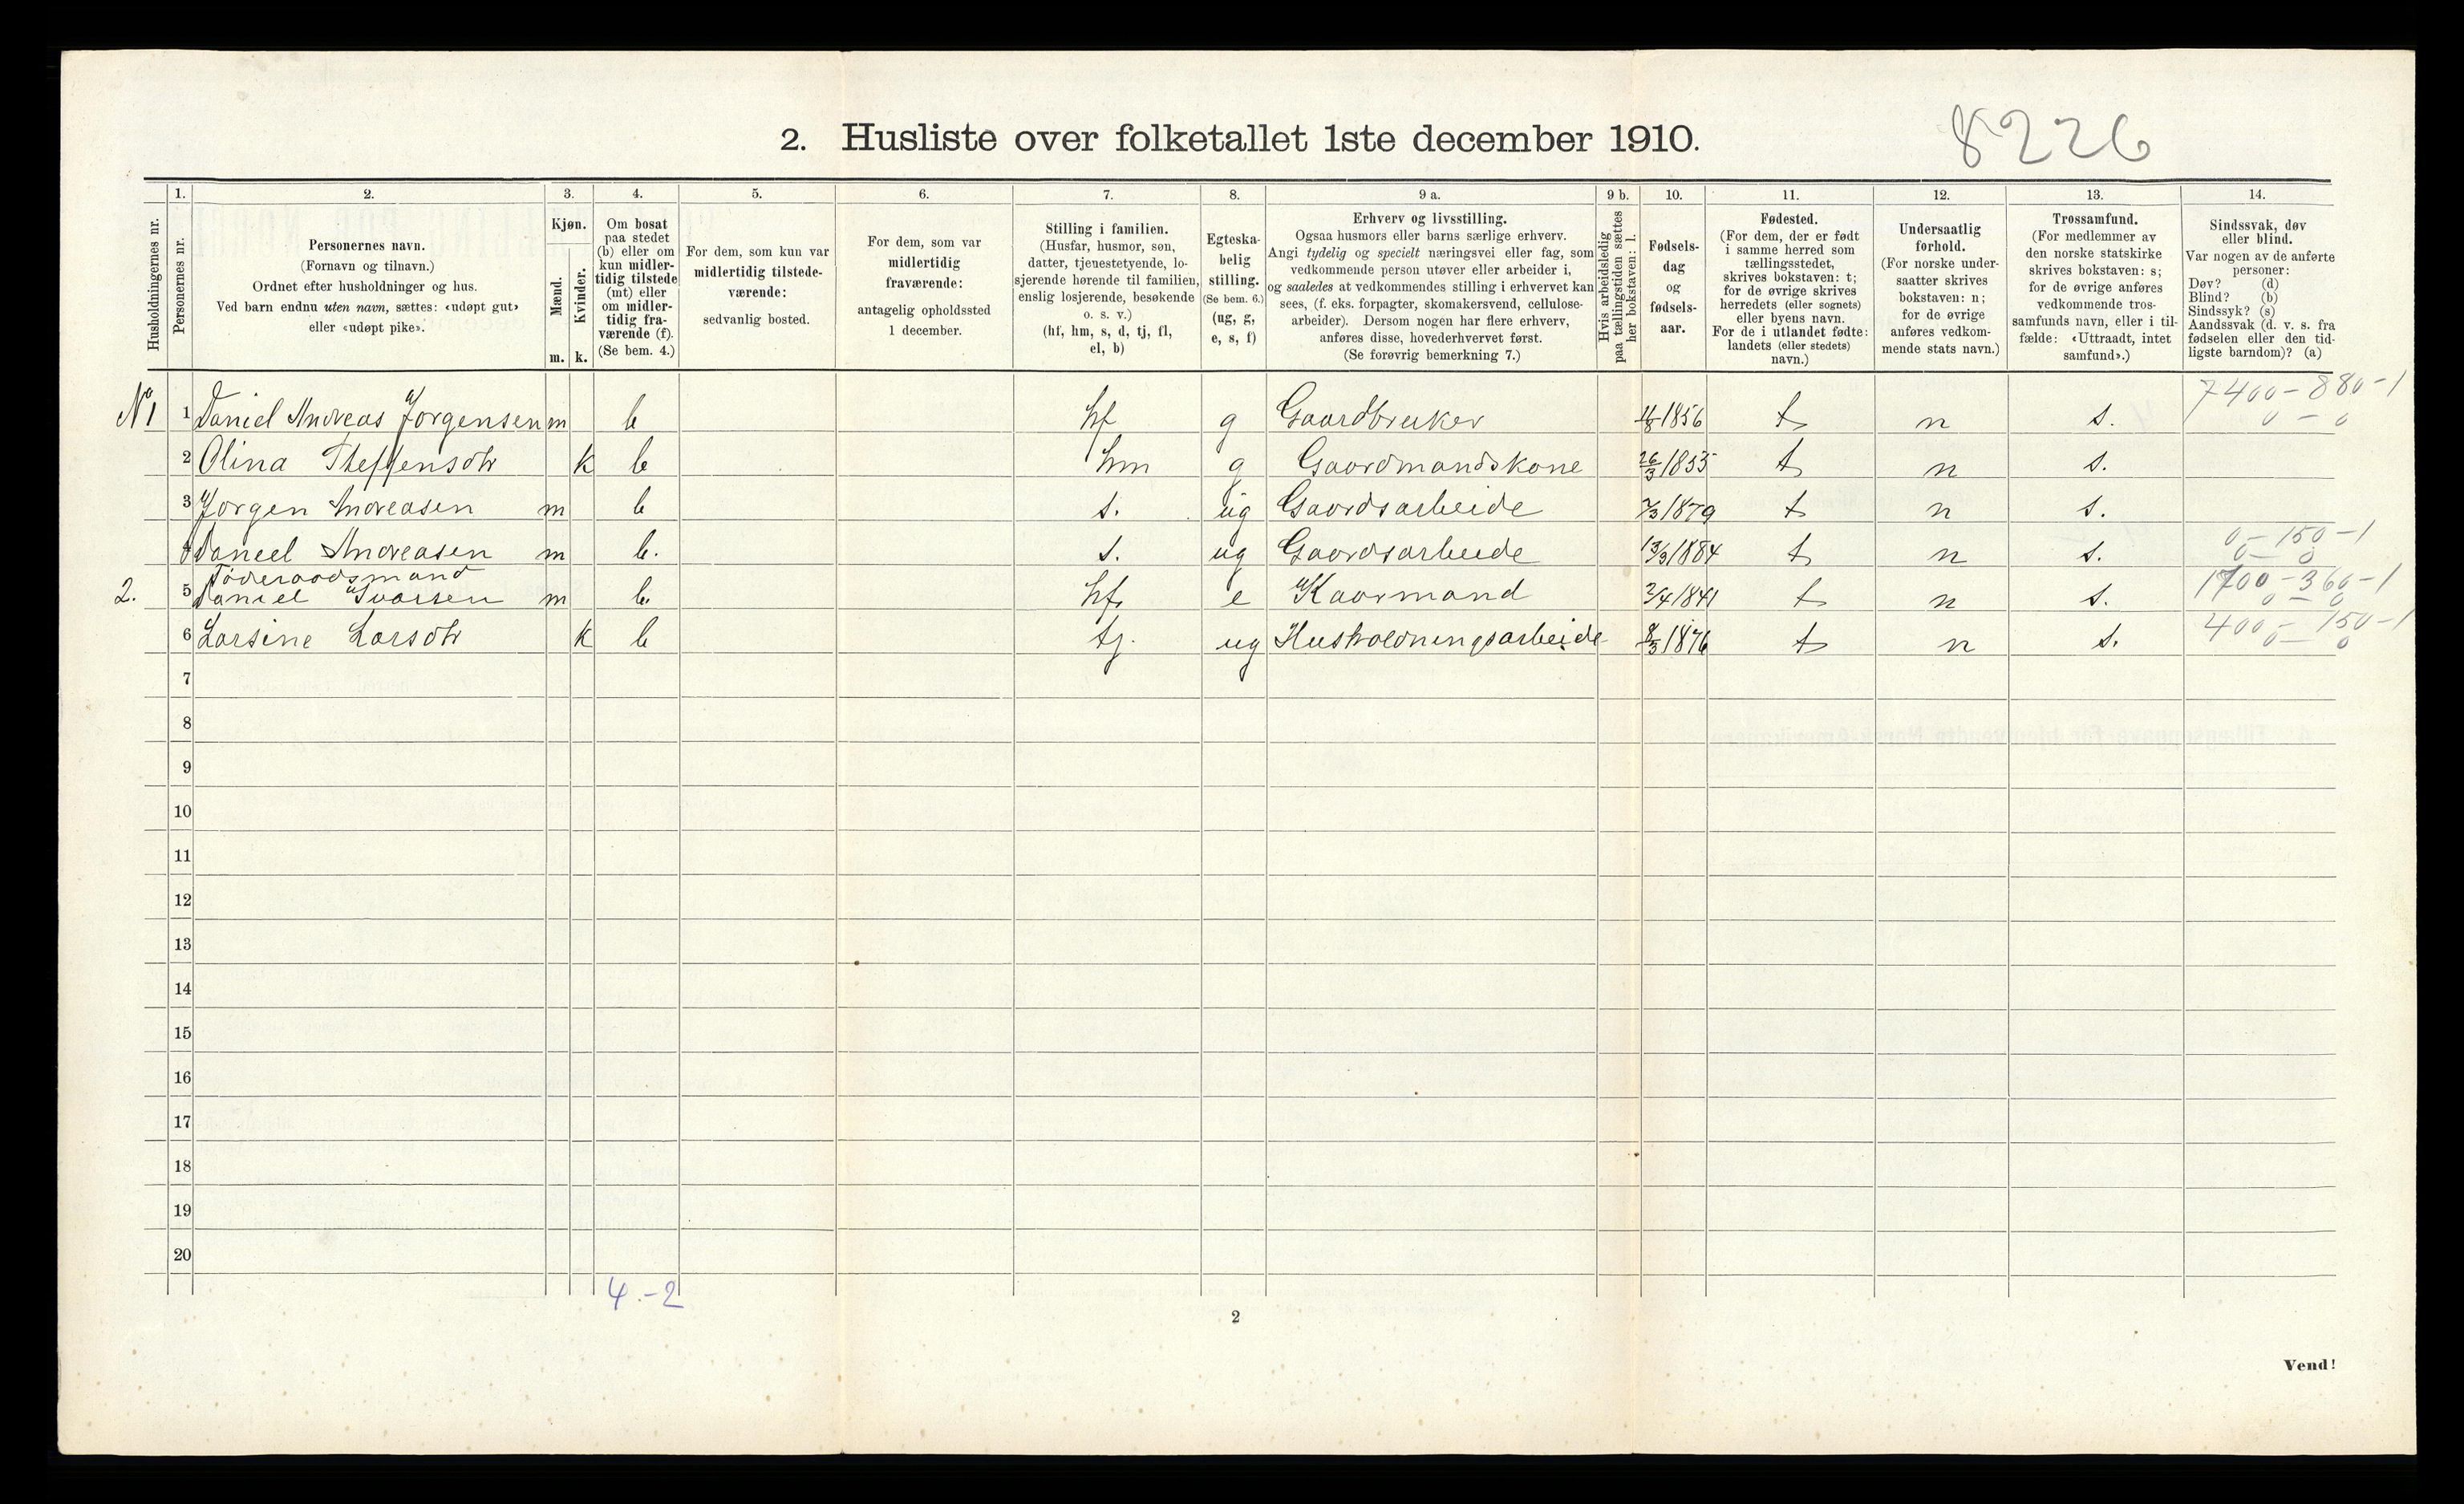 8226
2. Husliste over folketallet 1ste december 1910.
Husholdningernes nr.
1.
Personernes nr.
2.
Personernes navn.
(Fornavn og tilnavn.)
Ordnet efter husholdninger og hus.
Ved barn endnu uten navn, sættes: «udøpt gut»
eller «udøpt pike».
3.
Kjøn.
Mænd.
Kvinder.
m. k.
4.
Om bosat
paa stedet
(b) eller om
kun midler-
tidig tilstede
(mt) eller
om midler-
tidig fra-
værende (f).
(Se bem. 4.)
5.
For dem, som kun var
midlertidig tilstede-
værende:
sedvanlig bosted.
6.
For dem, som var
midlertidig
fraværende:
antagelig opholdssted
1 december.
7.
Stilling i familien.
(Husfar, husmor, søn,
datter, tjenestetyende, lo-
sjerende hørende til familien,
enslig losjerende, besøkende
o. s. v.)
(hf, hm, s, d, tj, fl,
el, b)
8.
Egteska-
belig
stilling.
(Se bem. 6.)
(ug, g,
e, s, f)
9 a.
Erhverv og livsstilling.
Ogsaa husmors eller barns særlige erhverv.
Angi tydelig og specielt næringsvei eller fag, som
vedkommende person utøver eller arbeider i,
og saaledes at vedkommendes stilling i erhvervet kan
sees, (f. eks. forpagter, skomakersvend, cellulose-
arbeider). Dersom nogen har flere erhverv,
anføres disse, hovederhvervet først.
(Se forøvrig bemerkning 7.)
9 b.
Hvis arbeidsledig
paa tællingstiden sættes
her bokstaven: l.
10.
Fødsels-
dag
og
fødsels-
aar.
11.
Fødested.
(For dem, der er født
i samme herred som
tællingsstedet,
skrives bokstaven: t;
for de øvrige skrives
herredets (eller sognets)
eller byens navn.
For de i utlandet fødte:
landets (eller stedets)
navn.)
12.
Undersaatlig
forhold.
(For norske under-
saatter skrives
bokstaven: n;
for de øvrige
anføres vedkom-
mende stats navn.)
13.
Trossamfund.
(For medlemmer av
den norske statskirke
skrives bokstaven: s;
for de øvrige anføres
vedkommende tros-
samfunds navn, eller i til-
fælde: «Uttraadt, intet
samfund».)
14.
Sindssvak, døv
eller blind.
Var nogen av de anførte
personer:
Døv? (d)
Blind? (b)
Sindssyk? (s)
Aandssvak (d. v. s. fra
fødselen eller den tid-
ligste barndom)? (a)
7400-880-1
0-0
No 1 1 Daniel Andreas Jørgensen m b hf g Gaardbruker 1856 t n s.
2 Olina Theffensdtr k b hm g Gaardmandskone 26/3 1855 t n s.
3 Jørgen Andreasen m b s. ug Gaardsarbeide 7/3 1879 t n s.
0-150-1
0-0
4 Daniel Andreasen m b. s. ug Gaardsarbeide 13/3 1884 t n s.
Føderaadsmand
1700-360-1
0-0
2. 5 Daniel Ivarsen m b. hf. e Kaarmand 2/4 1841 t n s.
400-150-1
0-0
6 Larsine Larsdtr k b tj. ug Husholdningsarbeide 8/3 1876 t n s.
7
8
9
10
11
12
13
14
15
16
17
18
19
20
4.-2
2
Vend!